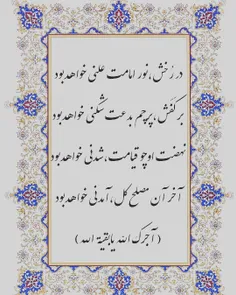 در رُخش، نور امامت علنی خواهد بود
بر کَفَش، پرچم بدعت شکنی خواهد بود
نهضت او چو قیامت، شدنی خواهد بود
آخر آن مصلح کل، آمدنی خواهد بود
( آجرک الله یا بقیة الله )